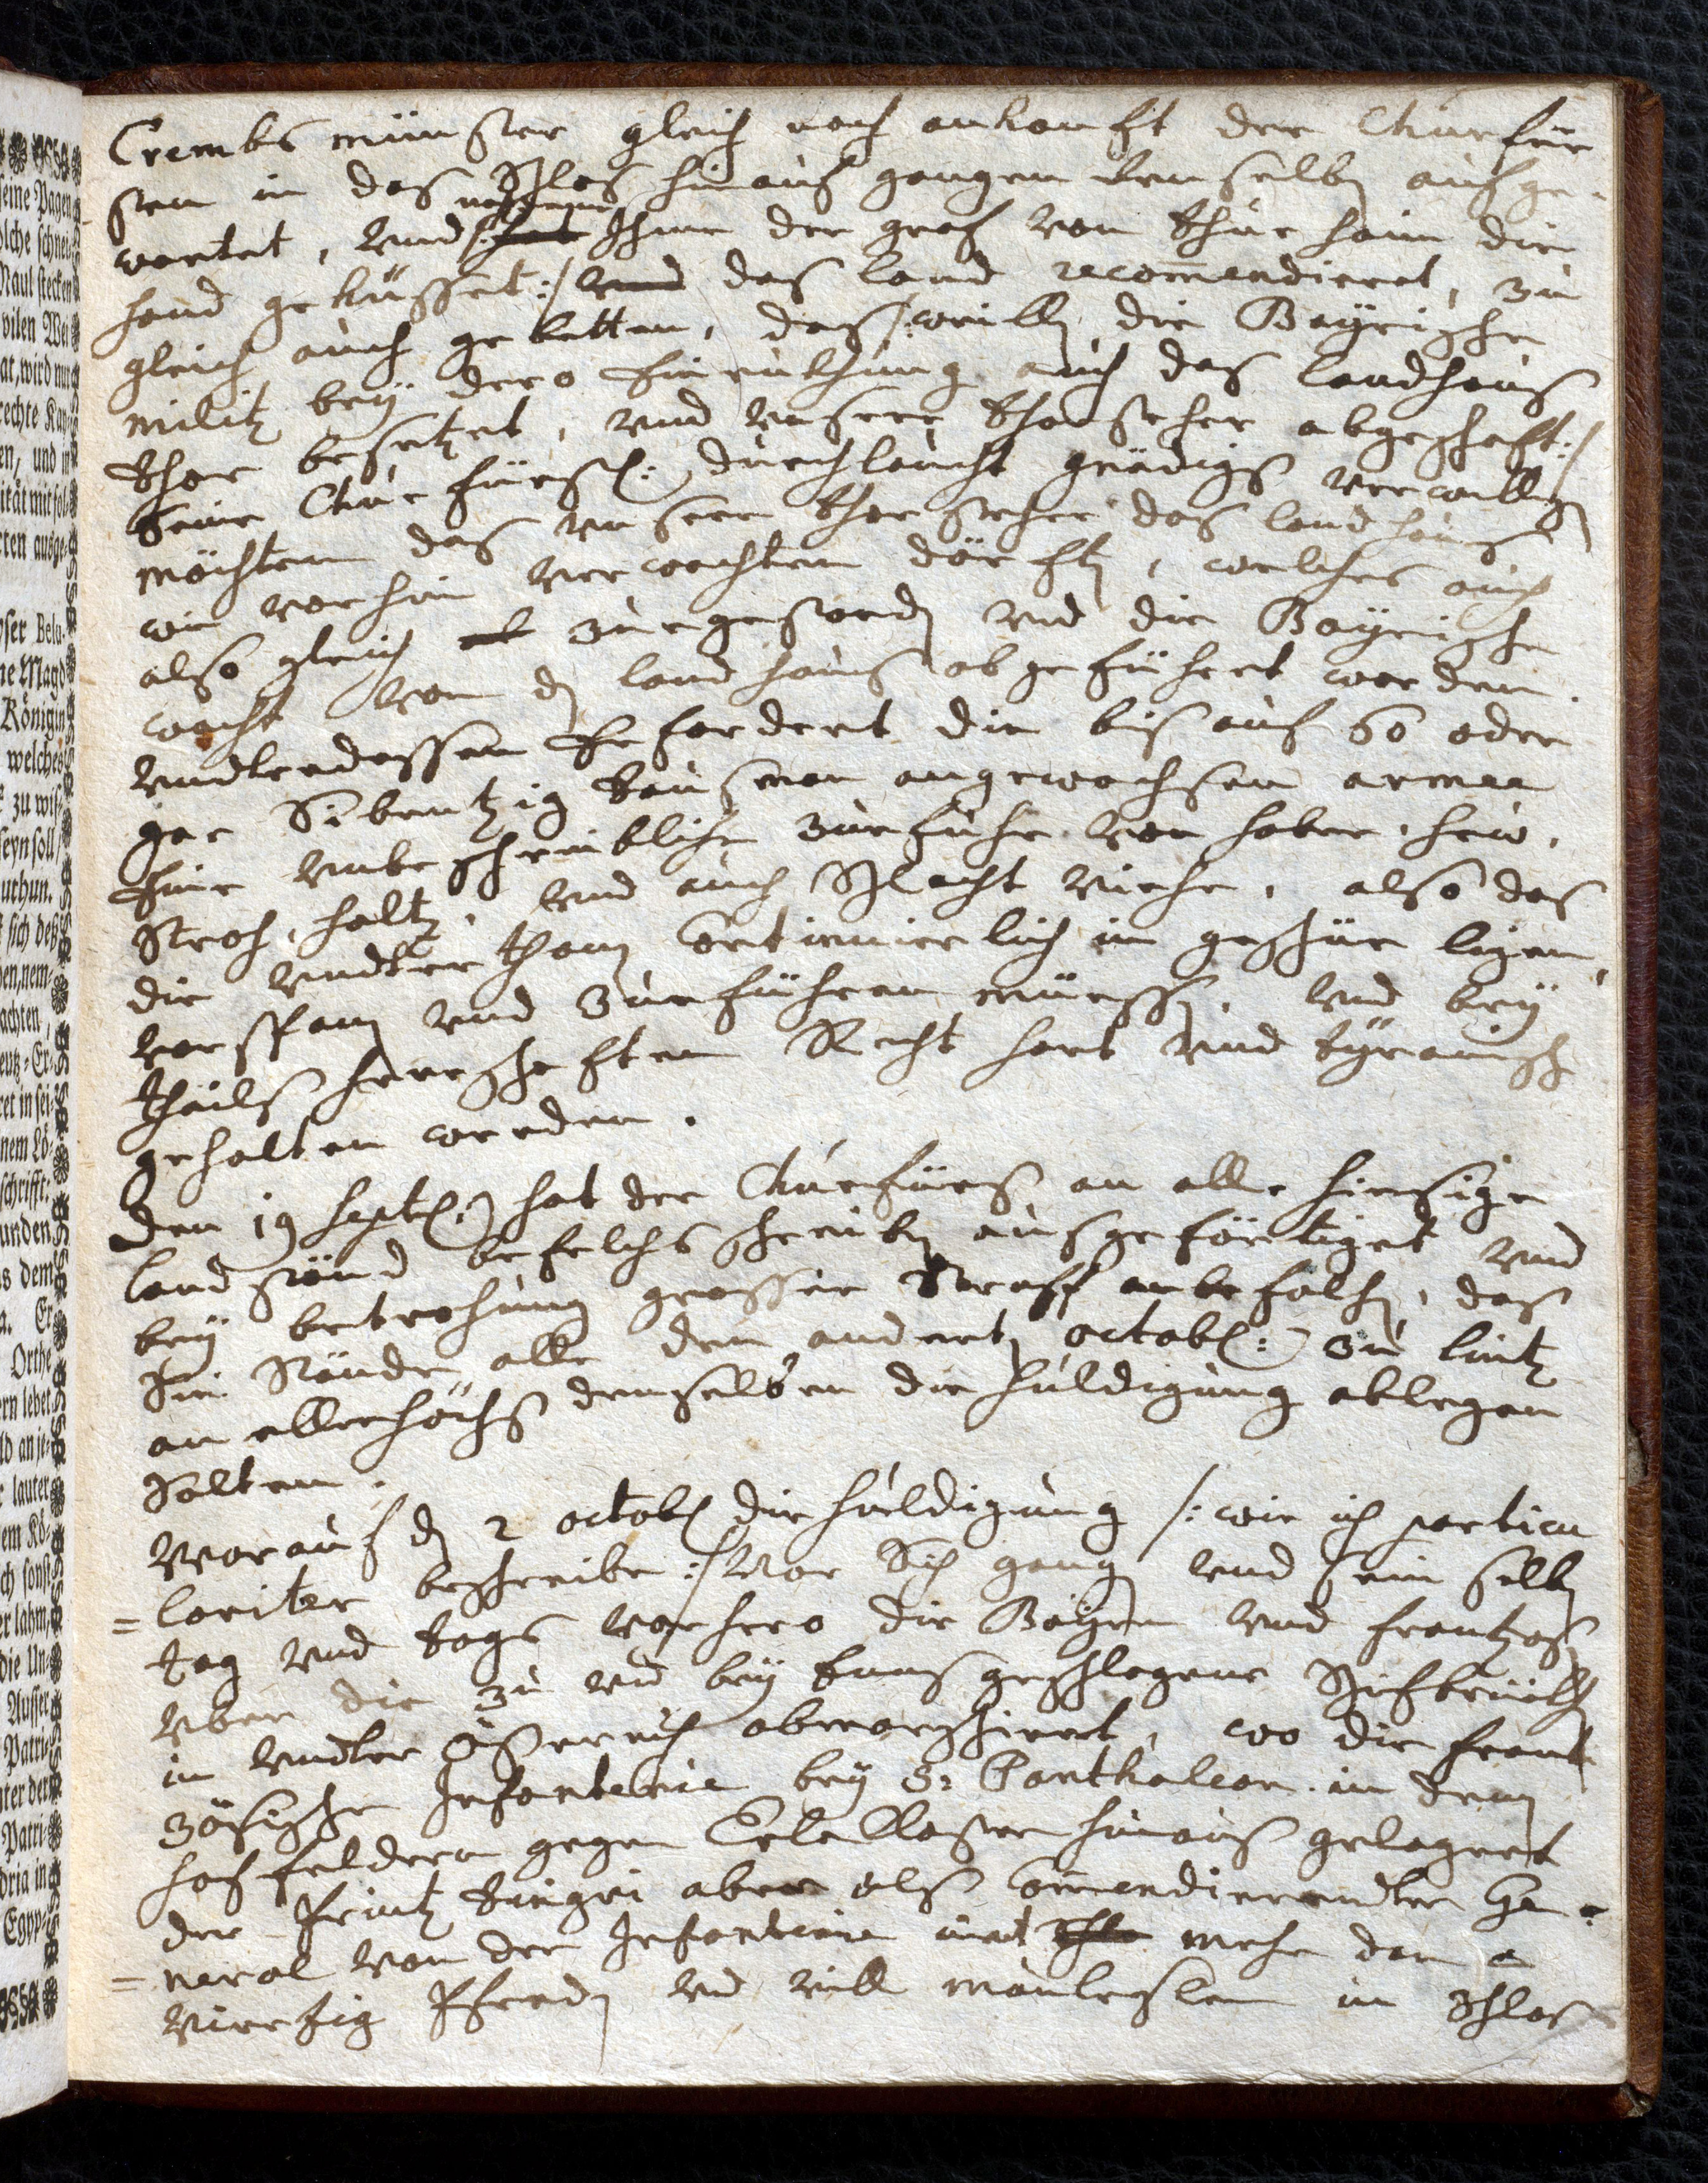 Crembsmünster gleich nach ankonfft der Churfür
sten in das Schlos hinauf gangen demselben aufge-
nahmens
wartet, vnd /: hat Ihme der graf von Thürhaim die
hand geküsset :/ vnd das land recommendieret, zu
gleich auch gebetten, das /: weillen die Bayrische
militz bey dero einrukhung auch das landhaus
thor besetzet, vnd vnsere thorsteher abgeschafft :/
Seine Churfürstl: Durchlaucht gnädigst verwilligen
möchten das vnsere thorsteher das landhaus
wie vorhin verwachten dörfften, welches auch
also gleich zuegestanden vnd die Bayrische
wacht von dem landhaus abgeführet worden.
vndterdessen erfordert die bis auf 60 oder
gar Sibentzig tausent man angewachsene armee
eine vnbeschreibliche zuefuhr von haber, heu,
Stroh, holtz, vnd auch Schlacht viehe, also das
die vndterthanen continuierlich im geschür ligen,
vorspann vnd zuefuhren müessen, vnd bey
thails herrschafften Recht hart vnd tyranisch
gehalten werden.
Den 19 Septb: hat der Churfürst an alle hiesige
landständ befelchsschreiben ausgefördiget vnd
bey betrohung grosser Straff anbefolchen, das
Sie Stände alle den anderten octobr: zu lintz
an allerhöchst demselben die huldigung ablegen
Solten.
Worauf den 2 octobr die huldigung /: wie ich particu
=lariter beschreibe :/ vor Sich gangen vnd sein selben
tag vnd tags vorhero die Bayrn vnd frantzosen
vber die zu vnd bey Enns geschlagene Schifbrückhen
in vndter össterreich abmarschieret, wo die frant
zösische Infanterie bey St: Panthaleon in denen
hoffeldern gegen Erla Closter hinaus gelagert
der Printz Tingri aber als Commendierendter Ge-
=neral von der Infanterie mit mehr dan
viertzig Pferden vnd vill mauleslen in Schlos